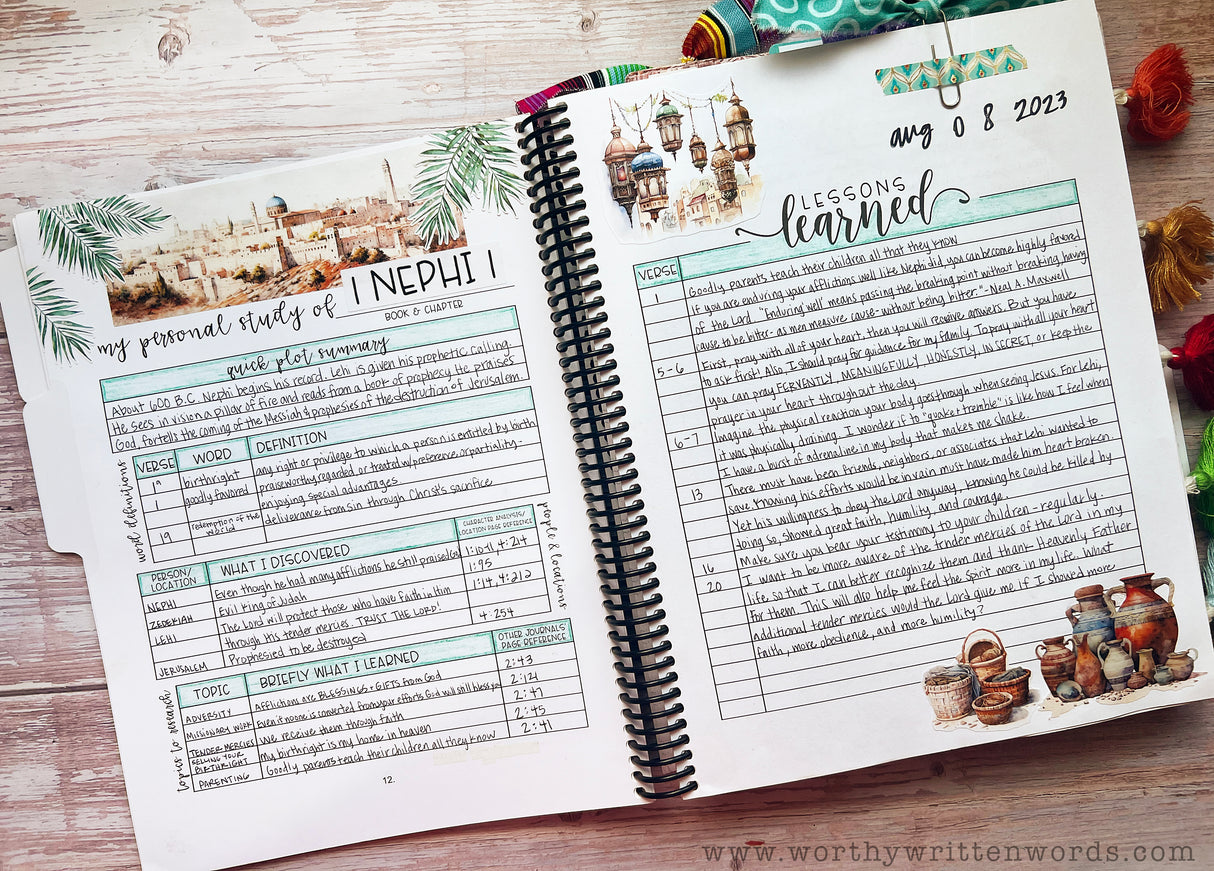 my personal study of 1 NEPHI 1
BOOK & CHAPTER
quick plot summary
About 600 B.C. Nephi begins his record. Lehi is given his prophetic calling.
He sees in vision a pillar of fire and reads from a book of prophecy. He praises
God, fortells the coming of the Messiah & prophesies of the destruction of Jerusalem
word definitions
VERSE WORD DEFINITION
1a birthright any right or privilege to which a person is entitled by birth
1 goodly favored praiseworthy, regarded or treated w/ preference or partiality-
enjoying special advantages
19 redemption of the world deliverance from sin through Christ's sacrifice
people & locations
PERSON/LOCATION WHAT I DISCOVERED CHARACTER ANALYSIS/LOCATION PAGE REFERENCE
NEPHI Even though he had many afflictions he still praised God 1:10-11, 4:214
ZEDEKIAH Evil King of Judah 1:95
LEHI The Lord will protect those who have faith in Him 1:14, 4:212
through His tender mercies. TRUST THE LORD!
JERUSALEM Prophesied to be destroyed 4:254
topics to research
TOPIC BRIEFLY WHAT I LEARNED OTHER JOURNALS' PAGE REFERENCE
ADVERSITY Afflictions are BLESSINGS + GIFTS from God 2:43
MISSIONARY WORK Even if no one is converted from your efforts God will still bless you 2:121
TENDER MERCIES We receive them through faith 2:47
SELLING YOUR BIRTHRIGHT My birthright is my home in heaven 2:45
PARENTING Goodly parents teach their children all they know 2:41
12.
aug 08 2023
LESSONS
learned
VERSE
1 Goodly parents teach their children all that they know
If you are enduring your afflictions well like Nephi did, you can become highly favored
of the Lord. "Enduring well" means passing the breaking point without breaking, having
cause to be bitter- as men measure cause- without being bitter." -Neal A. Maxwell
5-6 First, pray with all of your heart, then you will receive answers. But you have
to ask first! Also I should pray for guidance for my family. To pray with all your heart
you can pray FERVENTLY, MEANINGFULLY, HONESTLY, IN SECRET, or keep the
prayer in your heart throughout the day.
6-7 Imagine the physical reaction your body goes through when seeing Jesus. For Lehi,
it was physically draining. I wonder if to "quake & tremble" is like how I feel when
I have a burst of adrenaline in my body that makes me shake.
13 There must have been friends, neighbors, or associates that Lehi wanted to
save. Knowing his efforts would be in vain must have made him heart broken.
Yet his willingness to obey the Lord anyway, knowing he could be killed by
doing so, showed great faith, humility, and courage.
16 Make sure you bear your testimony to your children - regularly.
20 I want to be more aware of the tender mercies of the Lord in my
life so that I can better recognize them and thank Heavenly Father
for them. This will also help me feel the Spirit more in my life. What
additional tender mercies would the Lord give me if I showed more
faith, more obedience, and more humility?
www.worthywrittenwords.com